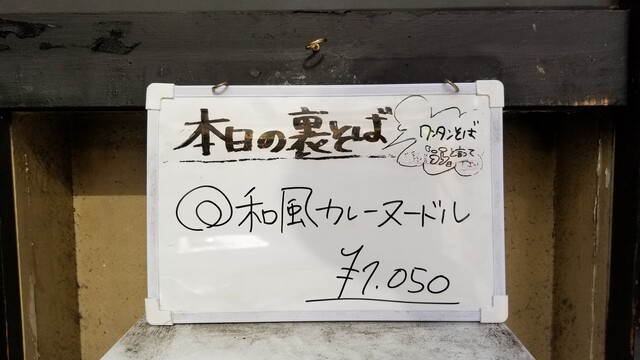 本日の裏そば
ワンタンそば
◎和風カレーヌードル
¥1.050